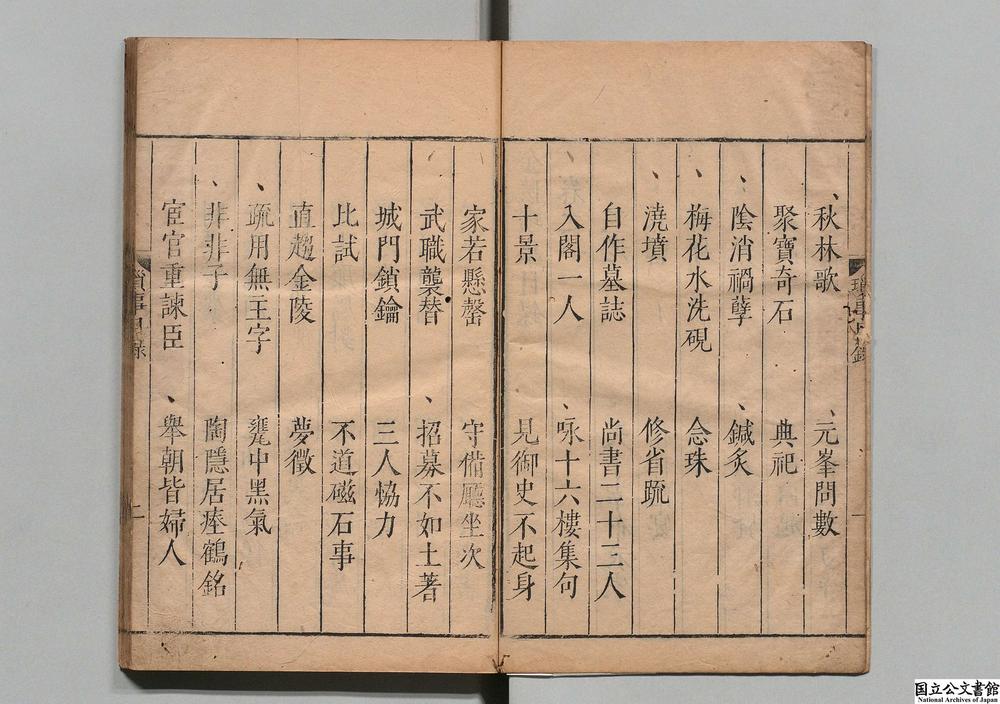 秋林歌 元峯問數
聚寶奇石 典祀
陰消禍孽 鍼炙
梅花水洗硯 念珠
澆墳 修省疏
自作墓誌 尚書二十三人
入閣一人 咏十六樓集句
十景 見御史不起身
家若懸罄 守備廳坐次
武職襲替 招募不如土著
城門鎖鑰 三人恊力
比試 不道磁石事
直趨金陵 夢徵
疏用無王字 甕中黑氣
非非子 陶隱居瘞鶴銘
宦官重諫臣 舉朝皆婦人
瑣事目錄 二
国立公文書館
National Archives of Japan